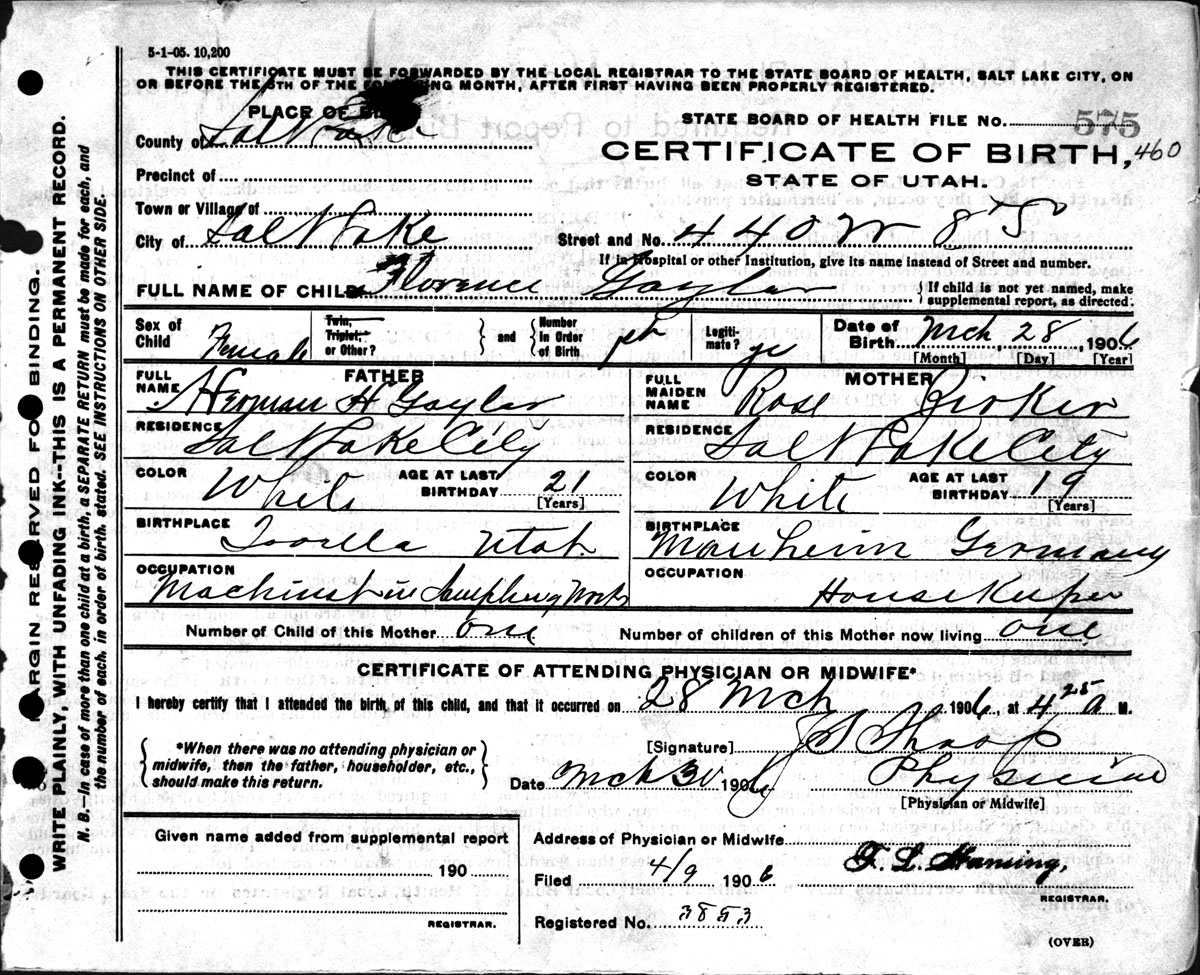 5-1-05. 10,200
THIS CERTIFICATE MUST BE FORWARDED BY THE LOCAL REGISTRAR TO THE STATE BOARD OF HEALTH, SALT LAKE CITY, ON
OR BEFORE THE 5TH OF THE FOLLOWING MONTH, AFTER FIRST HAVING BEEN PROPERLY REGISTERED.
PLACE OF
STATE BOARD OF HEALTH FILE NO. 575
County of Salt Lake
CERTIFICATE OF BIRTH, 460
STATE OF UTAH.
Precinct of
Town or Village of
City of Salt Lake
Street and No. 440 W 8 S
If in Hospital or other Institution, give its name instead of Street and number.
FULL NAME OF CHILD Florence Gaylor
If child is not yet named, make
supplemental report, as directed.
Sex of Child Female
Twin, Triplet, or Other?
and
Number in Order of Birth
Legitimate?
Date of Birth Mch 28 1906
[Month] [Day] [Year]
FATHER
FULL NAME Herman H Gaylor
RESIDENCE Salt Lake City
COLOR White
AGE AT LAST BIRTHDAY 21
[Years]
BIRTHPLACE Utah
OCCUPATION Machinist in
MOTHER
FULL MAIDEN NAME Rose
RESIDENCE Salt Lake City
COLOR White
AGE AT LAST BIRTHDAY 19
[Years]
BIRTHPLACE Manheim Germany
OCCUPATION
Housekeeper
Number of Child of this Mother one
Number of children of this Mother now living one
CERTIFICATE OF ATTENDING PHYSICIAN OR MIDWIFE*
I hereby certify that I attended the birth of this child, and that it occurred on 28 Mch 1906, at 4 25 A M.
*When there was no attending physician or
midwife, then the father, householder, etc.,
should make this return.
[Signature]
Date Mch 30 1906
Physician
[Physician or Midwife]
Given name added from supplemental report
190
REGISTRAR.
Address of Physician or Midwife
Filed 4/9 1906
REGISTRAR.
Registered No. 3853
(OVER)
MARGIN RESERVED FOR BINDING.
WRITE PLAINLY, WITH UNFADING INK--THIS IS A PERMANENT RECORD.
N. B.—In case of more than one child at a birth, a SEPARATE RETURN must be made for each, and
the number of each, in order of birth, stated. SEE INSTRUCTIONS ON OTHER SIDE.